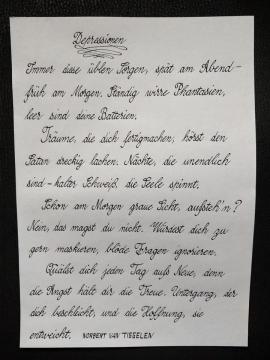 Depressionen
Immer diese üblen Sorgen, spät am Abend-
früh am Morgen. Ständig wirre Phantasien,
leer sind deine Batterien.
Träume, die dich fertigmachen, hörst den
Satan dreckig lachen. Nächte, die unendlich
sind - kalter Schweiß, die Seele spinnt.
Schon am Morgen graue Sicht, aufsteh'n?
Nein, das magst du nicht. Würdest dich zu
gern maskieren, blöde Fragen ignorieren.
Quälst dich jeden Tag aufs Neue, denn
die Angst hält dir die Treue. Untergang, der
dich beschleicht, und die Hoffnung, sie
entweicht. NORBERT VAN TIGGELEN